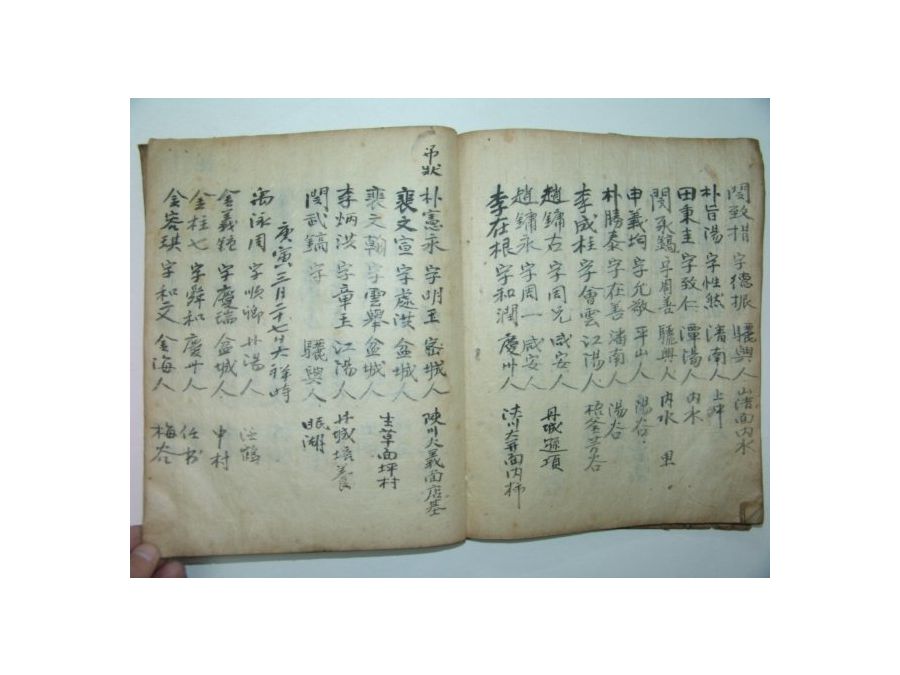 閔致楷 字德振 驪興人 山淸面內水
朴旨陽 字性然 潘南人 上
田秉圭 字致仁 潭陽人 內水
閔永鎬 字周善 驪興人 內水 里
申義均 字允敬 平山人 陽谷
朴勝泰 字在善 潘南人 陽谷
李成桂 字會雲 江陽人 梧釜谷
趙鏞右 字周兄 咸安人 丹城 項
趙鏞永 字周一 咸安人
李在根 字和潤 慶州人 陜川 面內
弔狀 朴憲永 字明玉 密城人 陜川大義面店基
裵文宣 字處洪 盆城人
裵文翰 字雲擧 盆城人 生草面坪村
李炳洪 字章玉 江陽人 丹城培養
閔武鎬 字 驪興人 眠湖
庚寅三月二十七日大祥時
禹泳周 字順卿 丹陽人 鶴
金義鍾 字慶瑞 盆城人 中村
金柱七 字舜和 慶州人
金容琪 字和文 金海人 梅谷